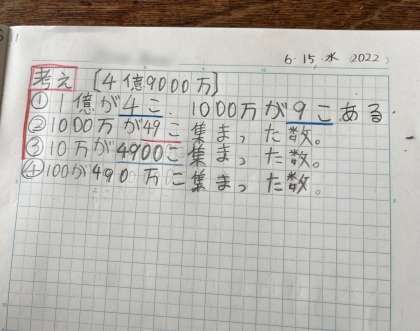 6.15 水 (2022)
考え [4億9000万]
① 1億が4こ、1000万が9こある
②1000万が49こ集まった数。
③10万が4900こ集まった数。
④100が490万こ集まった数。